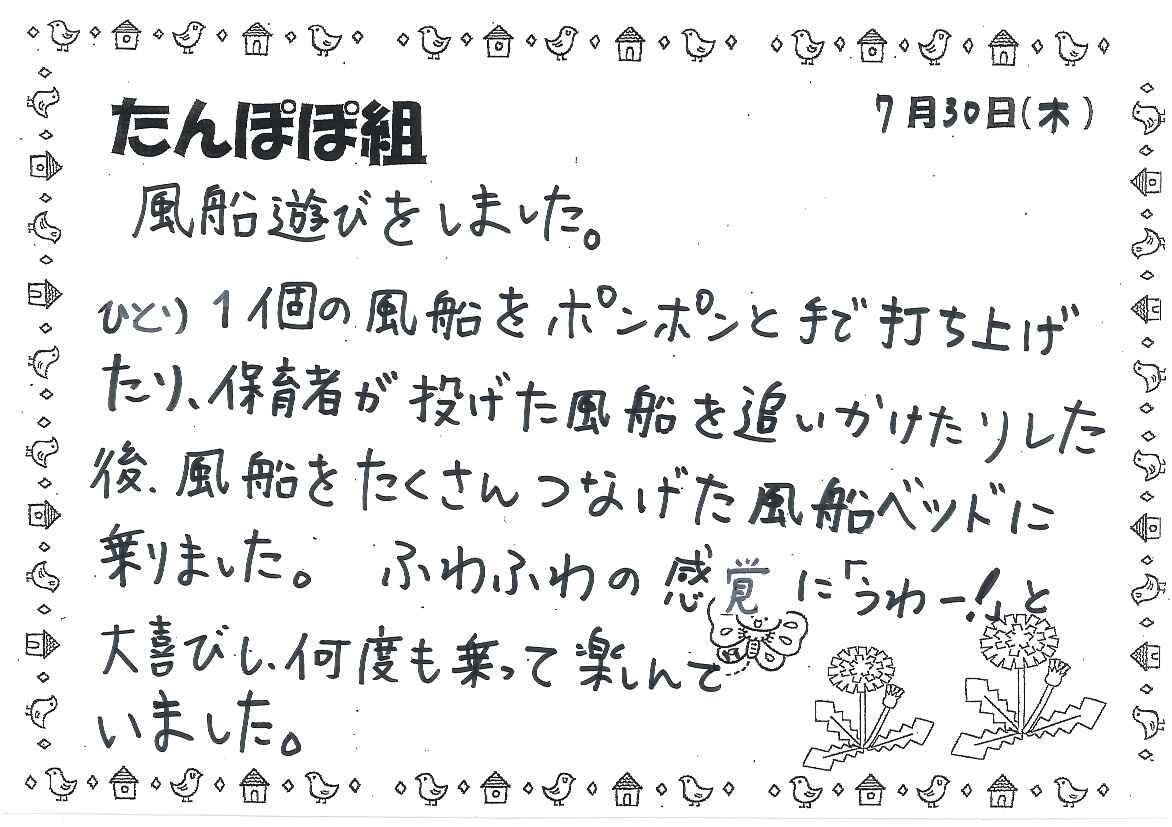 たんぽぽ組
7月30日(木)
風船遊びをしました。
ひとり1個の風船をポンポンと手で打ち上げ
たり、保育者が投げた風船を追いかけたりした
後、風船をたくさんつなげた風船ベッドに
乗りました。 ふわふわの感覚に「うわー!」と
大喜びし、何度も乗って楽しんで
いました。